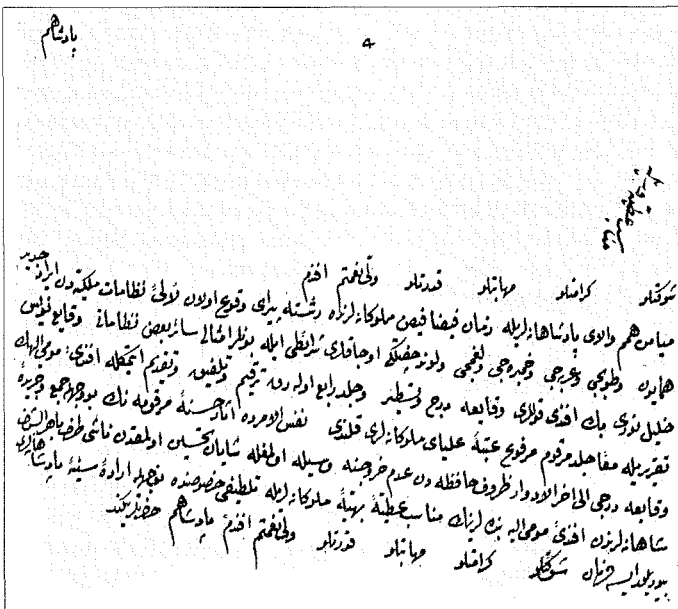 پادشاهم
شوکتلو کرامتلو مهابتلو قدرتلو ولی نعمتم افندم
میامن همم والای پادشاهانه لریله زمان فیضا فیض ملوکانه لرنده رشته پیرای وقوع اولان لآلئ نظامات ملکیه دن ایراد جدید
همایون وطوپجی وعربه جی وخمبره جی ولغمجی ولوند چفتلکی اوجاقلری شرائطی ایله بونلر امثالی سائر بعض نظاماتی وقایع نویس
خلیل نوری بك افندی قوللری وقایعه درج وتسطیر وجلد رابع اوله رق ترقیم وتلفیق وتقدیم ایتمکله افندی مومی الیهك
تقریریله معا جلد مرقوم مرفوع عتبهٔ علیای ملوکانه لری قلندی نفس الامرده آثار حسنهٔ مرقومه نك بو وجهله جمع وجریدهٔ
وقایعه درجی الی آخر الادوار ظروف حافظه دن عدم خروجنه وسیله اولمغله شایان تحسین اولمقدن ناشی طرف باهر الشرف
شاهانه لرندن افندی مومی الیه بنده لرینك مناسب عطیهٔ بهیهٔ ملوکانه لریله تلطیفی خصوصنده نه وجهله ارادهٔ سنیهٔ پادشاهانه لری
بیوریلور ایسه فرمان شوکتلو کرامتلو مهابتلو قدرتلو ولی نعمتم افندم پادشاهم حضرتلرینکدر